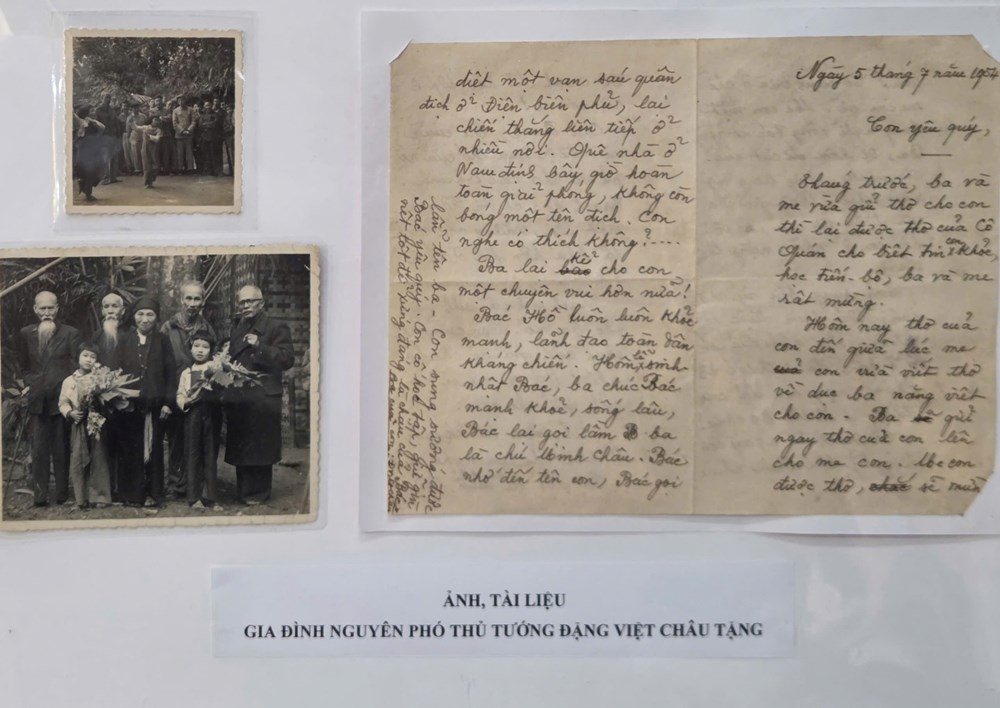 Ngày 5 tháng 7 năm 1954
Con yêu quý,
Tháng trước, ba và
mẹ vừa gửi thơ cho con
thì lại được thơ của Cô
Quán cho biết tin con khoẻ,
học tiến-bộ, ba và mẹ
rất mừng.
Hôm nay thơ của
con đến giữa lúc mẹ
của con vừa viết thơ
về dục ba năng viết
cho con. Ba gửi
ngay thơ của con lên
cho mẹ con. Mẹ con
được thơ, chắc sẽ mừn
diệt một vạn sáu quân
địch ở Điện biên phủ, lại
chiến thắng liên tiếp ở
nhiều nơi. Quê nhà ở
Nam định bây giờ hoàn
toàn giải phóng, không còn
bóng một tên địch. Con
nghe có thích không?....
Ba lại kể cho con
một chuyện vui hơn nữa!
Bác Hồ luôn luôn khoẻ
mạnh, lãnh đạo toàn dân
kháng chiến. Hôm lễ sinh-
nhật Bác, ba chúc Bác
mạnh khoẻ, sống lâu,
Bác lại gọi lầm ba
là chú Minh Châu. Bác
nhớ đến tên con, Bác gọi
lẫn tên ba - Con sung sướng được
Bác yêu quý - Con cố học tập, giữ gìn
nết tốt để xứng đáng là cháu của Bác
Ba của con
ẢNH, TÀI LIỆU
GIA ĐÌNH NGUYÊN PHÓ THỦ TƯỚNG ĐẶNG VIỆT CHÂU TẶNG